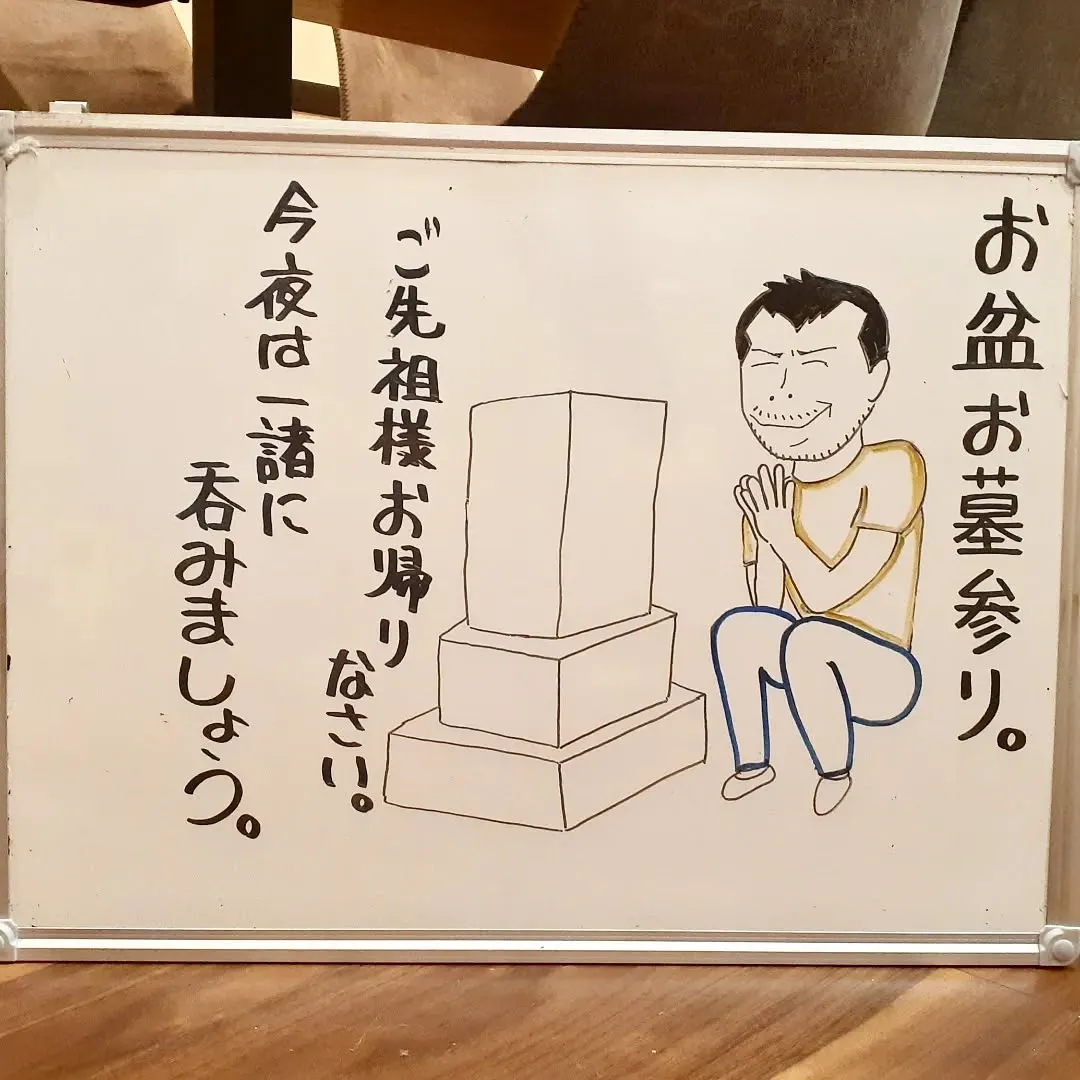 お盆お墓参り。
ご先祖様お帰り
なさい。
今夜は一諸に
呑みましょう。